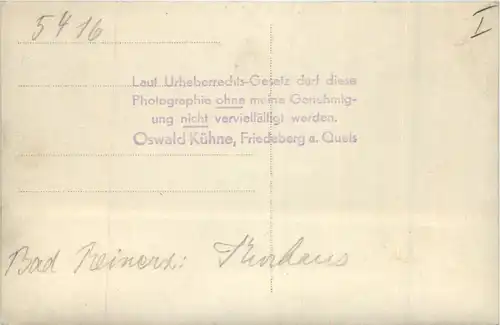 5416
I
Laut Urheberrechts-Gesetz darf diese
Photographie ohne meine Genehmig-
ung nicht vervielfältigt werden.
Oswald Kühne, Friedeberg a. Queis
Bad Reinerz: Kurhaus